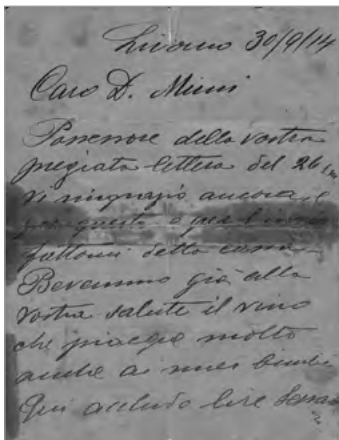 Livorno 30/9/14
Caro D. Mimì
Possessore della vostra
pregiata lettera del 26
vi ringrazio ancora
per questo e per l'invio
fattomi detto
Bevemmo già alla
vostra salute il vino
che piacque molto
anche ai miei bimbi
Qui accludo lire